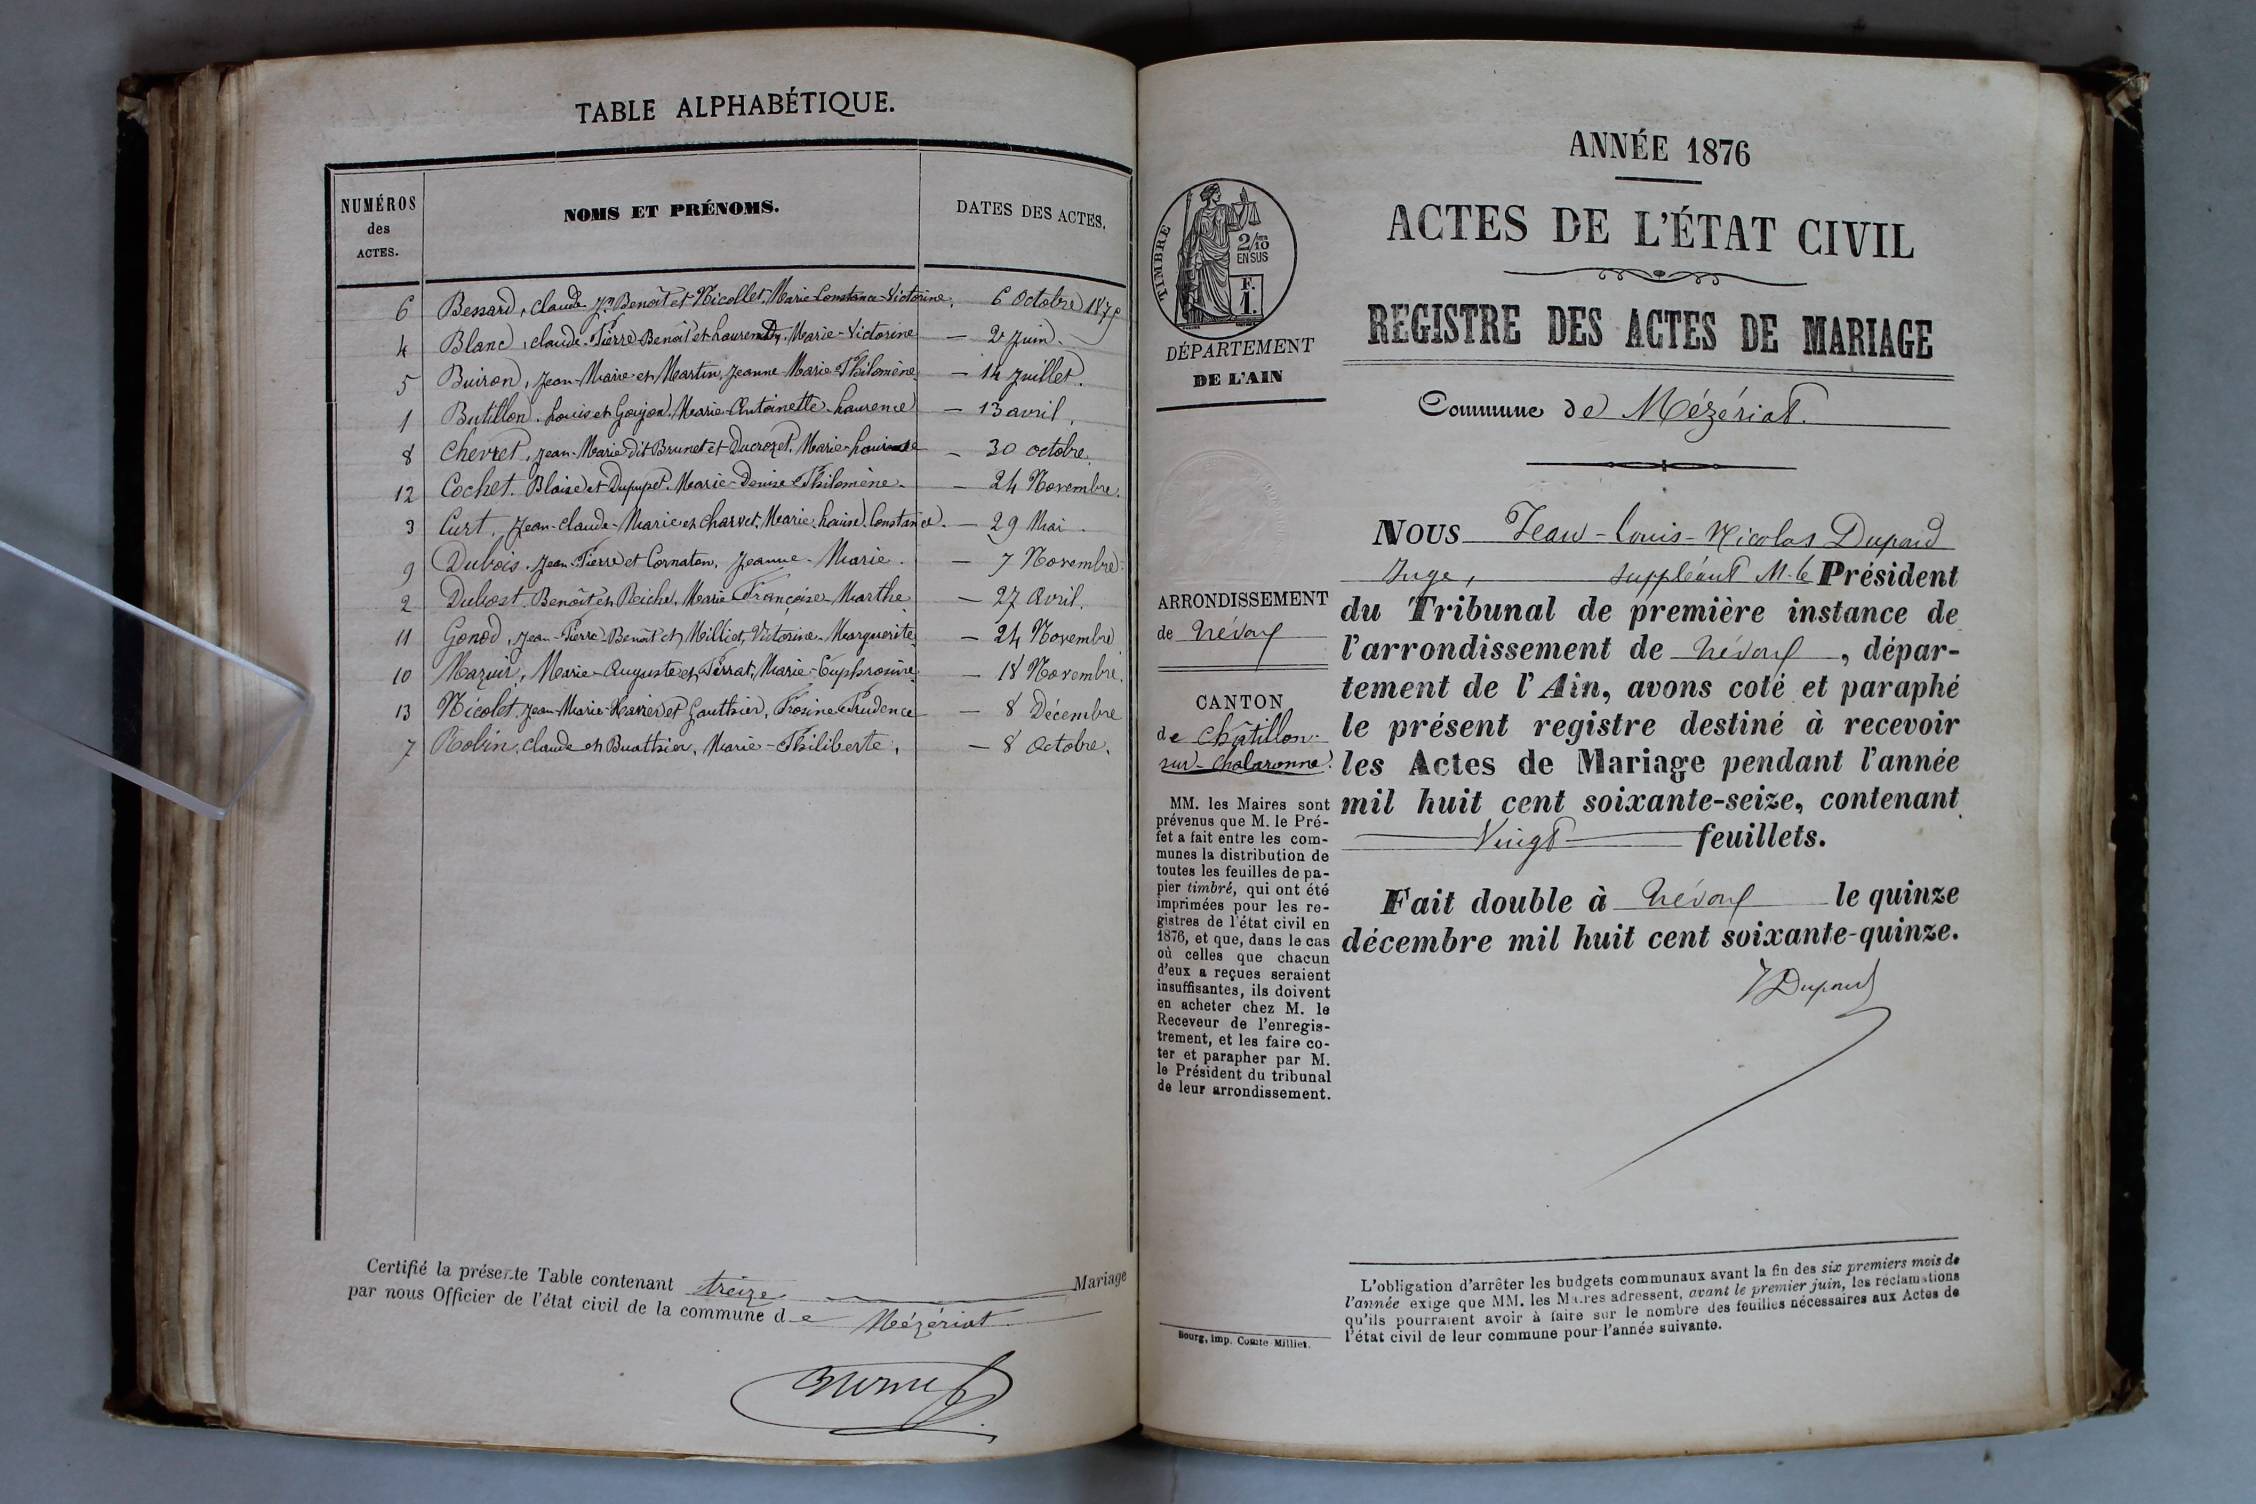 TABLE ALPHABÉTIQUE.
NUMÉROS
des
ACTES.
NOMS ET PRÉNOMS.
DATES DES ACTES.
6 Bessard, Claude Benoît et Nicollet, Marie-Constance-Victorine. 6 Octobre 1875
4 Blanc, Claude-Pierre-Benoît et Marie-Victorine — 2 Juin.
5 Buiron, Jean-Marie et Martin, Jeanne-Marie-Philomène. — 14 Juillet.
1 Butillon, Louis et Goujon, Marie-Antoinette-Laurence — 13 avril.
8 Chevret, Jean-Marie dit Brunet et Ducrozet, Marie — 30 octobre.
12 Cochet, Blaise et Dupupet, Marie-Denise-Philomène. — 24 Novembre.
3 Curt, Jean-Claude-Marie et Charvet, Marie-Louise-Constance. — 29 Mai.
9 Dubois, Jean-Pierre et Cornaton, Jeanne-Marie. — 7 Novembre.
2 Dubost, Benoît et Marie-Françoise-Marthe — 27 Avril.
11 Gonod, Jean-Pierre-Benoît et Milliet, Victorine-Marguerite — 24 Novembre
10 Mazuir, Marie-Auguste et Perrat, Marie-Euphrosine. — 18 Novembre.
13 Nicolet, Jean-Marie-Xavier et Gauthier, Frosine-Prudence — 8 Décembre
7 Robin, Claude et Buathier, Marie-Philiberte. — 8 Octobre.
Certifié la présente Table contenant treize Mariage
par nous Officier de l'état civil de la commune de Mézériat
ANNÉE 1876
ACTES DE L'ÉTAT CIVIL
REGISTRE DES ACTES DE MARIAGE
Commune de Mézériat.
TIMBRE
2/10
EN SUS
F.
1.
DÉPARTEMENT
DE L'AIN
ARRONDISSEMENT
de Trévoux
CANTON
de Châtillon-
sur-Chalaronne.
MM. les Maires sont
prévenus que M. le Pré-
fet a fait entre les com-
munes la distribution de
toutes les feuilles de pa-
pier timbré, qui ont été
imprimées pour les re-
gistres de l'état civil en
1876, et que, dans le cas
où celles que chacun
d'eux a reçues seraient
insuffisantes, ils doivent
en acheter chez M. le
Receveur de l'enregis-
trement, et les faire co-
ter et parapher par M.
le Président du tribunal
de leur arrondissement.
Bourg, imp. Comte-Milliet.
NOUS Jean-Louis-Nicolas Dupond
Juge, suppléant M. le Président
du Tribunal de première instance de
l'arrondissement de Trévoux, dépar-
tement de l'Ain, avons coté et paraphé
le présent registre destiné à recevoir
les Actes de Mariage pendant l'année
mil huit cent soixante-seize, contenant
Vingt feuillets.
Fait double à Trévoux le quinze
décembre mil huit cent soixante-quinze.
Dupond
L'obligation d'arrêter les budgets communaux avant la fin des six premiers mois de
l'année exige que MM. les Maires adressent, avant le premier juin, les réclamations
qu'ils pourraient avoir à faire sur le nombre des feuilles nécessaires aux Actes de
l'état civil de leur commune pour l'année suivante.